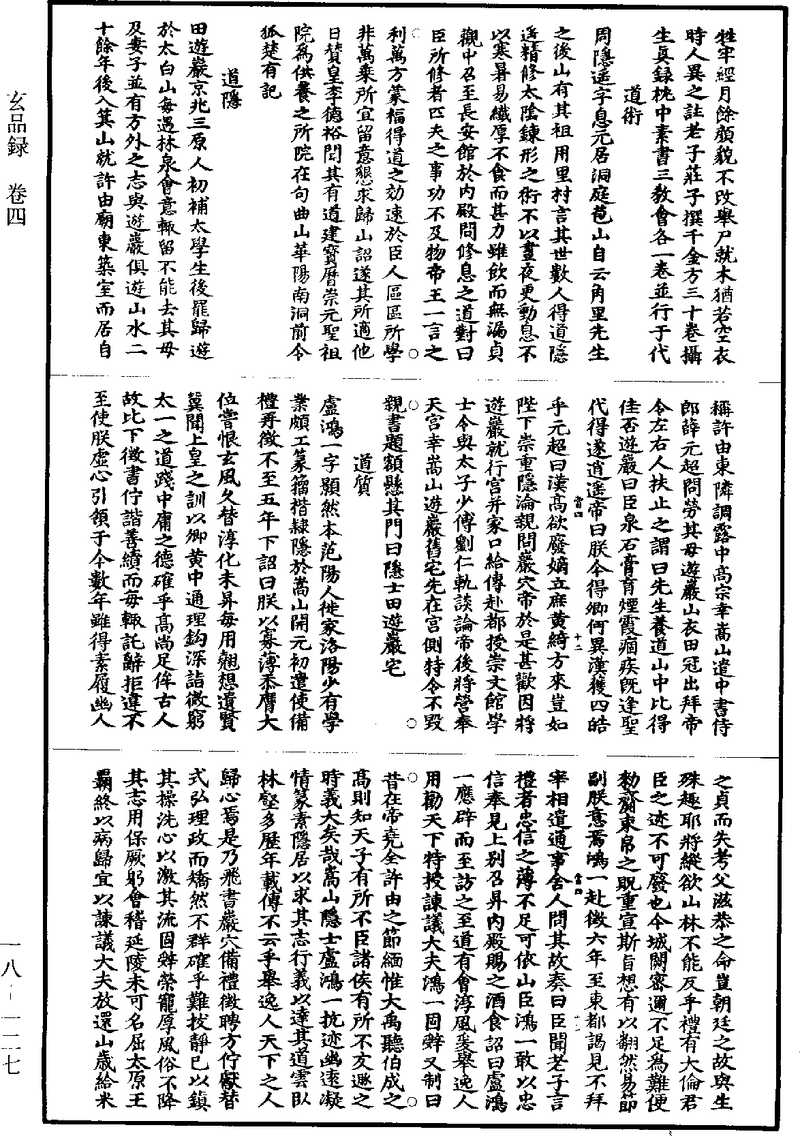 牲牢經月餘顏貌不改舉尸就木猶若空衣
時人異之註老子莊子撰千金方三十卷攝
生真錄枕中素書三教會各一卷並行于代
道術
周隱遥字息元居洞庭苞山自云角里先生
之後山有其祖用里村言其世數人得道隱
遥精修太陰鍊形之術不以晝夜更動息不
以寒暑易纖厚不食而甚力雖飲而無漏貞
觀中召至長安館於内殿問修息之道對曰
臣所修者匹夫之事功不及物帝王一言之
利萬方蒙福得道之効速於臣人區區所學
非萬乘所宜留意懇求歸山詔遂其所適他
日贊皇李德裕聞其有道建寳曆崇元聖祖
院為供養之所院在句曲山華陽南洞前令
狐楚有記
道隱
田遊巖京兆三原人初補太學生後罷歸遊
於太白山每遇林泉會意輒留不能去其母
及妻子並有方外之志與遊巖俱遊山水二
十餘年後入箕山就許由廟東築室而居自
稱許由東隣調露中髙宗幸嵩山遣中書侍
郎薛元超問勞其母遊巖山衣田冠出拜帝
令左右人扶止之謂曰先生養道山中比得
佳否遊巖曰臣泉石膏肓煙霞痼疾既逢聖
代得遂逍遥帝曰朕今得卿何異漢獲四皓
乎元超曰漢髙欲廢嫡立庶黄綺方來豈如
陛下崇重隱淪親問巖穴帝於是甚歡因將
遊巖就行宫并家口給傳赴都授崇文館學
士令與太子少傅劉仁軌談論帝後將營奉
天宫幸嵩山遊巖舊宅先在宫側特令不毀
親書題額懸其門曰隱士田遊巖宅
道質
盧鴻一字顥然本范陽人徙家洛陽少有學
業頗工篆籀楷隷隱於嵩山開元初遣使備
禮再徵不至五年下詔曰朕以寡薄忝膺大
位嘗恨玄風久替淳化未昇每用翹想遺賢
冀聞上皇之訓以卿黄中通理鈎深詣微窮
太一之道踐中庸之德確乎髙尚足侔古人
故比下徵書佇諧善績而每輒託辭拒違不
至使朕虚心引領于今數年雖得素履幽人
之貞而失考父滋恭之命豈朝廷之故與生
殊趣耶將縱欲山林不能反乎禮有大倫君
臣之迹不可廢也今城闕密邇不足為難便
勑齎束帛之貺重宣斯旨想有以翻然易節
副朕意焉鴻一赴徵六年至東都謁見不拜
宰相遣通事舍人問其故奏曰臣聞老子言
禮者忠信之薄不足可依山臣鴻一敢以忠
信奉見上别召昇内殿賜之酒食詔曰盧鴻
一應辟而至訪之至道有會淳風爰舉逸人
用勸天下特授諫議大夫鴻一固辭又制曰
昔在帝堯全許由之節緬惟大禹聽伯成之
髙則知天子有所不臣諸侯有所不友遯之
時義大矣哉嵩山隱士盧鴻一抗迹幽遠凝
情篆素隱居以求其志行義以達其道雲臥
林壑多歴年載傳不云乎舉逸人天下之人
歸心焉是乃飛書巖穴備禮徵聘方佇獻替
式弘理政而矯然不群確乎難拔靜已以鎮
其操洗心以激其流固辭榮寵厚風俗不降
其志用保厥躬會稽延陵未可名屈太原王
霸終以病歸宜以諫議大夫放還山歳給米
玄品録 卷四
一八－一二七